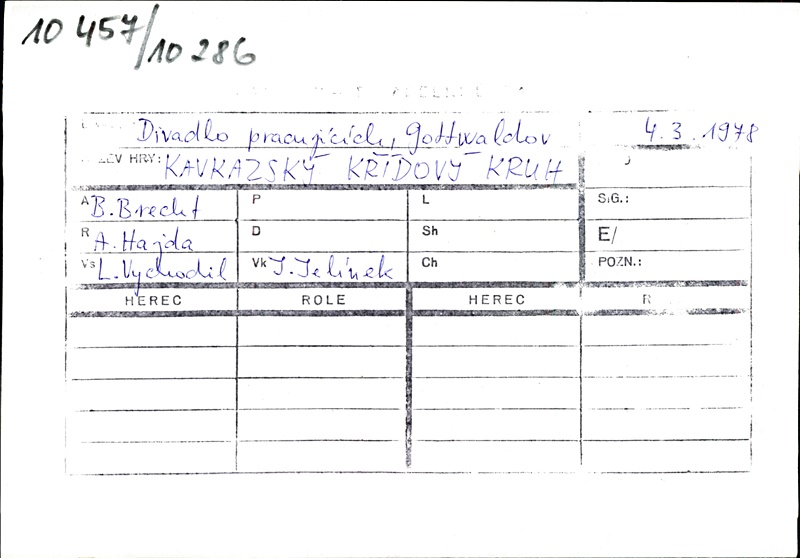 10 457/10 286
Divadlo pracujících, Gottwaldov 4.3.1978
HRY: KAVKAZSKÝ KŘÍDOVÝ KRUH
A B. Brecht P L SIG.:
R A. Hajda D Sh E/
Vs L. Vychodil Vk J. Jelínek Ch POZN.:
HEREC ROLE HEREC R